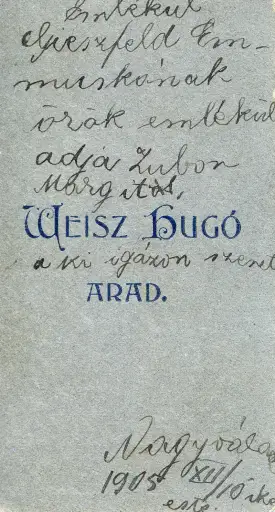 Emlékül
Gieszfeld Em-
muskának
örök emlékül
adja Zubon
Margitos,
WEISZ HUGÓ
a ki igázon szeret
ARAD.
1905 XII/10 ike
este.